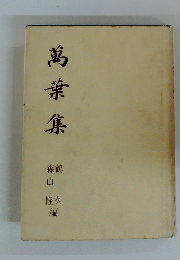 萬葉集
鶴 久
森山 隆 編